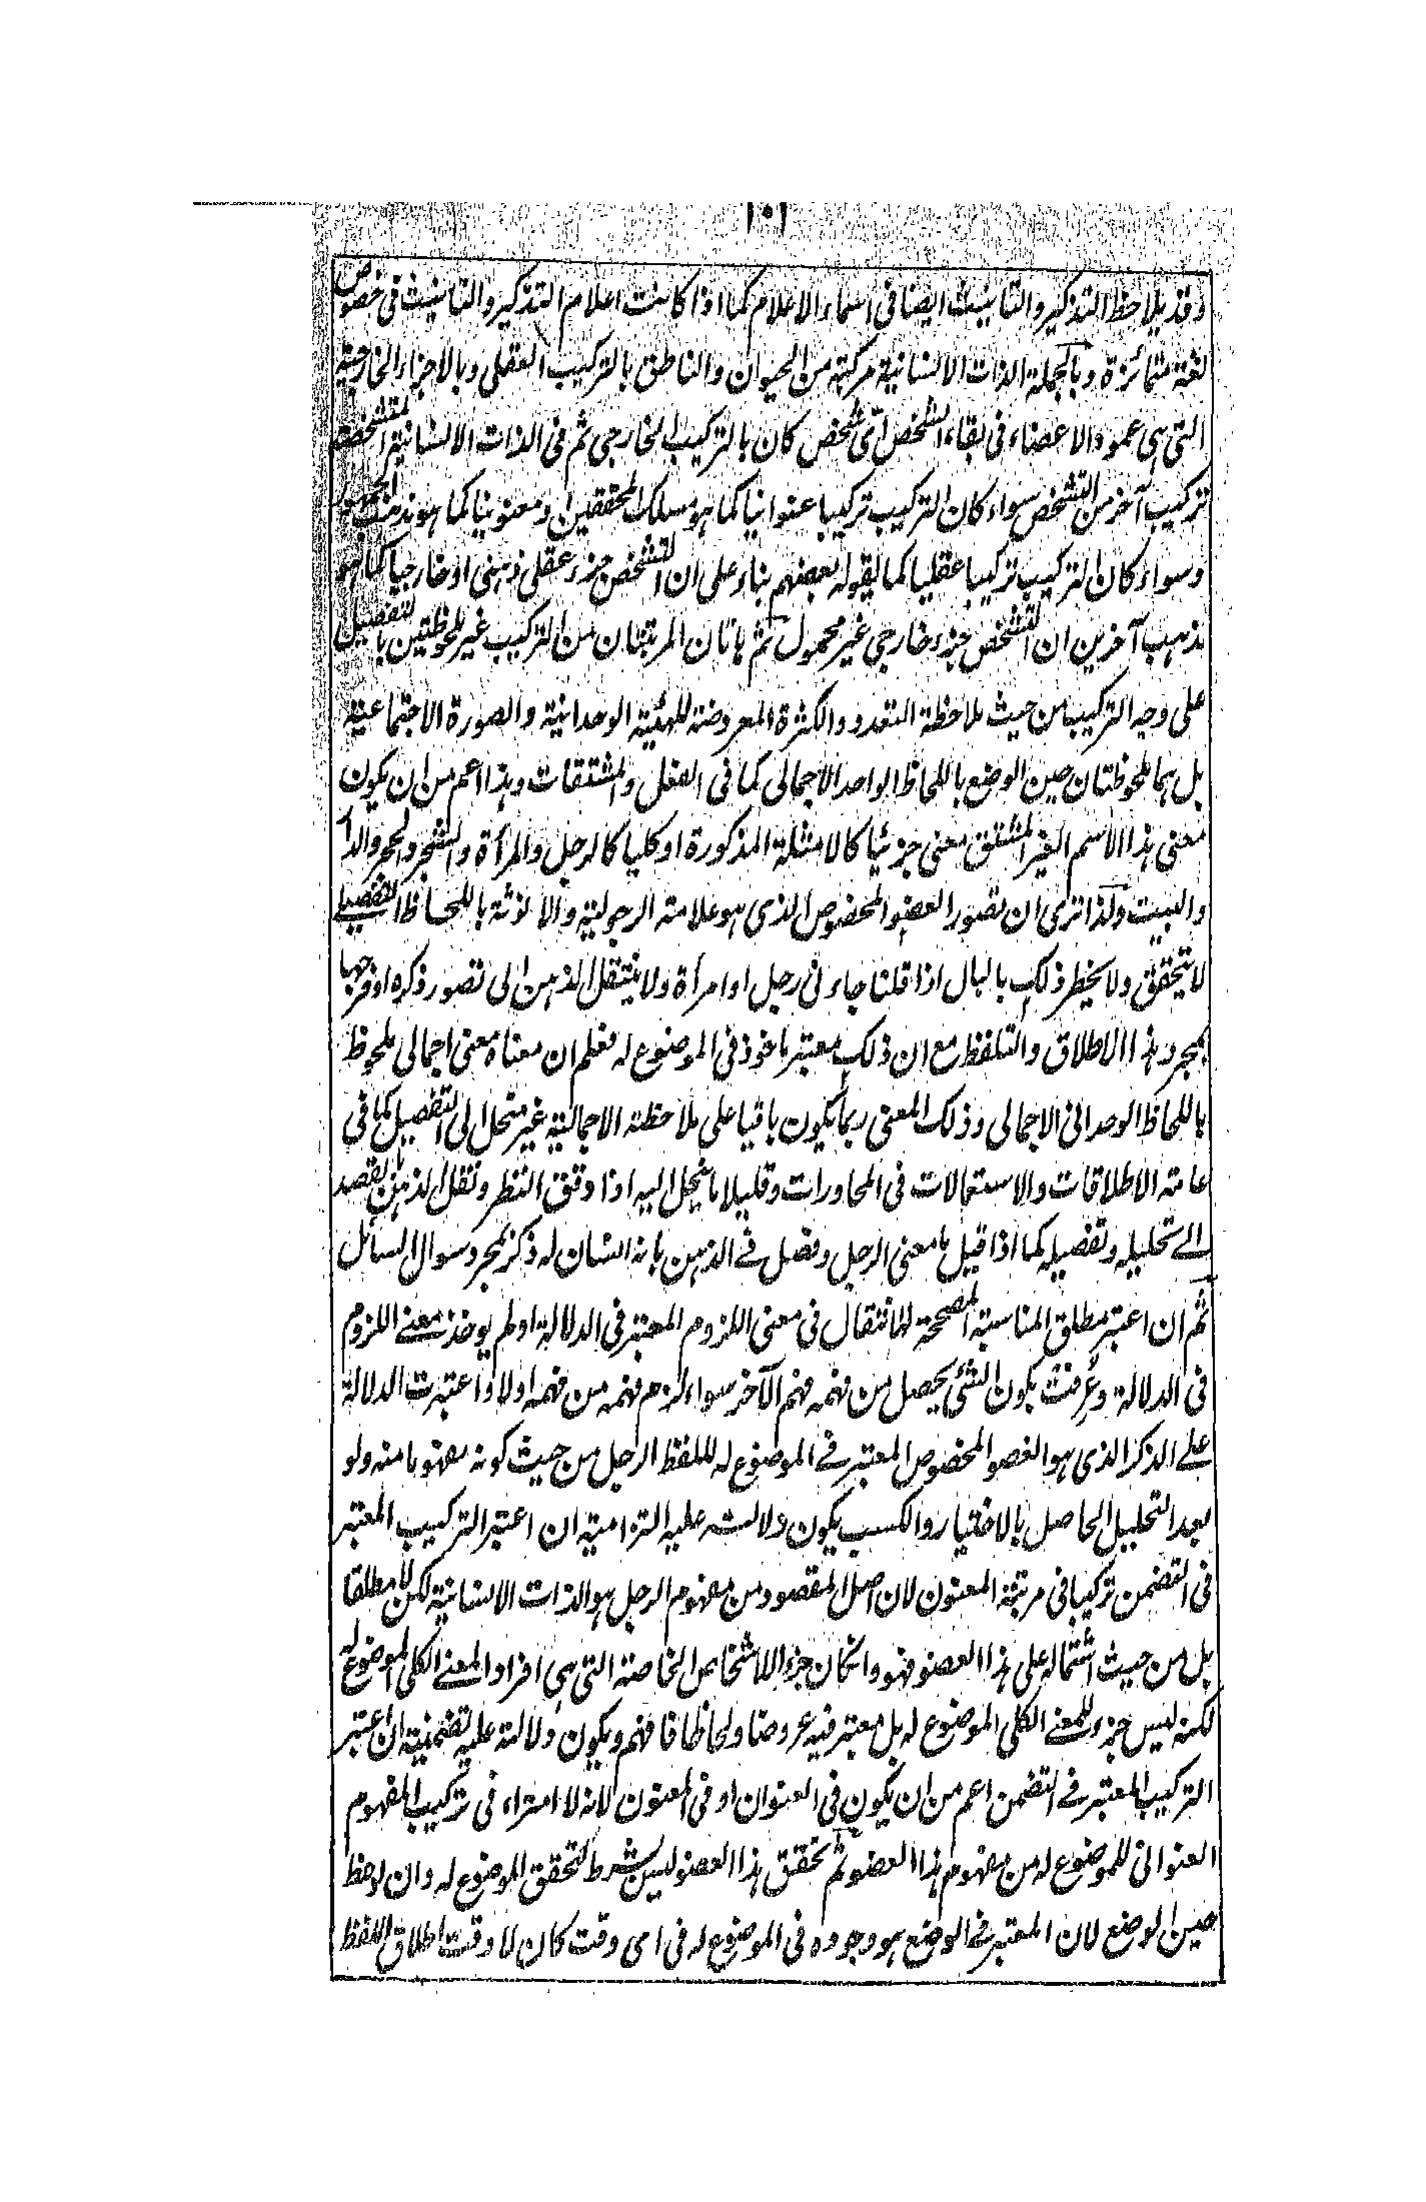 ١٠١
وقد يلاحظ التذكير والتانيث ايضا فى اسماء الاعلام كما اذا كانت اعلام التذكير والتانيث فى خصوص
لغة متمائزة وبالجملة الذات الانسانية مركبة من الحيوان والناطق بالتركيب العقلى وبالاجزاء الخارجية
التى هى عمود الاعضاء فى بقاء الشخص اى شخص كان بالتركيب الخارجى ثم فى الذات الانسانية المتشخصة
تركيب آخر من التشخص سواء كان التركيب تركيبا عنوانيا كما هو مسلك المحققين او معنونيا كما هو مذهب الجمهور
وسواء كان التركيب تركيبا عقليا كما يقوله بعضهم بناء على ان التشخص جزء عقلى ذهنى او خارجيا كما هو
مذهب آخرين ان التشخص جزء خارجى غير محمول ثم هاتان المرتبتان من التركيب غير ملحوظتين بالتفصيل
على وجه التركيب من حيث ملاحظة التعدد والكثرة المعروضة للهيئة الوحدانية والصورة الاجتماعية
بل هما ملحوظتان حين الوضع باللحاظ الواحد الاجمالى كما فى الفعل والمشتقات وهذا اعم من ان يكون
معنى هذا الاسم الغير المشتق معنى جزئيا كالامثلة المذكورة او كليا كالرجل والمرأة والشجر والحجر والدار
والبيت ولذا ترى ان تصور العضو المخصوص الذى هو علامة الرجولية والانوثة باللحاظ التفصيلى
لا يتحقق ولا يخطر ذلك بالبال اذا قلنا جاءنى رجل او امرأة ولا ينتقل الذهن الى تصور ذكره او فرجها
بمجرد هذا الاطلاق والتلفظ مع ان ذلك معتبر ماخوذ فى الموضوع له فعلم ان معناه معنى اجمالى ملحوظ
باللحاظ الوحدانى الاجمالى وذلك المعنى ربما يكون باقيا على ملاحظته الاجمالية غير منحل الى التفصيل كما فى
عامة الاطلاقات والاستعمالات فى المحاورات وقليلا ما ينحل اليه اذا دقق النظر ونقل الذهن بقصد
الى تحليله وتفصيله كما اذا قيل ما معنى الرجل وفصل فى الذهن بانه انسان له ذكر بمجرد سوال السائل
ثم ان اعتبر مطلق المناسبة المصححة للانتقال فى معنى اللزوم المعتبر فى الدلالة او لم يوخذ معنى اللزوم
فى الدلالة وعرفت بكون الشئ يحصل من فهمه فهم الآخر سواء لزم فهمه من فهمه اولا واعتبرت الدلالة
على الذكر الذى هو العضو المخصوص المعتبر فى الموضوع له للفظ الرجل من حيث كونه مفهوما منه ولو
بعد التحليل الحاصل بالاختيار والكسب يكون دلالته عليه التزامية ان اعتبر التركيب المعتبر
فى التضمن تركيبا فى مرتبة المعنون لان اصل المقصود من مفهوم الرجل هو الذات الانسانية لكن لا مطلقا
بل من حيث اشتماله على هذا العضو فهو وان كان جزء الاشخاص الخاصة التى هى افراد المعنى الكلى الموضوع له
لكنه ليس جزء للمعنى الكلى الموضوع له بل معتبر فيه عروضا ولحاظا فافهم ويكون دلالته عليه تضمنية ان اعتبر
التركيب المعتبر فى التضمن اعم من ان يكون فى العنوان او فى المعنون لانه لا امتراء فى تركيب المفهوم
العنوانى للموضوع له من مفهوم هذا العضو ثم تحقق هذا العضو ليس شرط لتحقق الموضوع له وان لوحظ
حين الوضع لان المعتبر فى الوضع هو وجوده فى الموضوع له فى اى وقت كان لا وقت اطلاق اللفظ